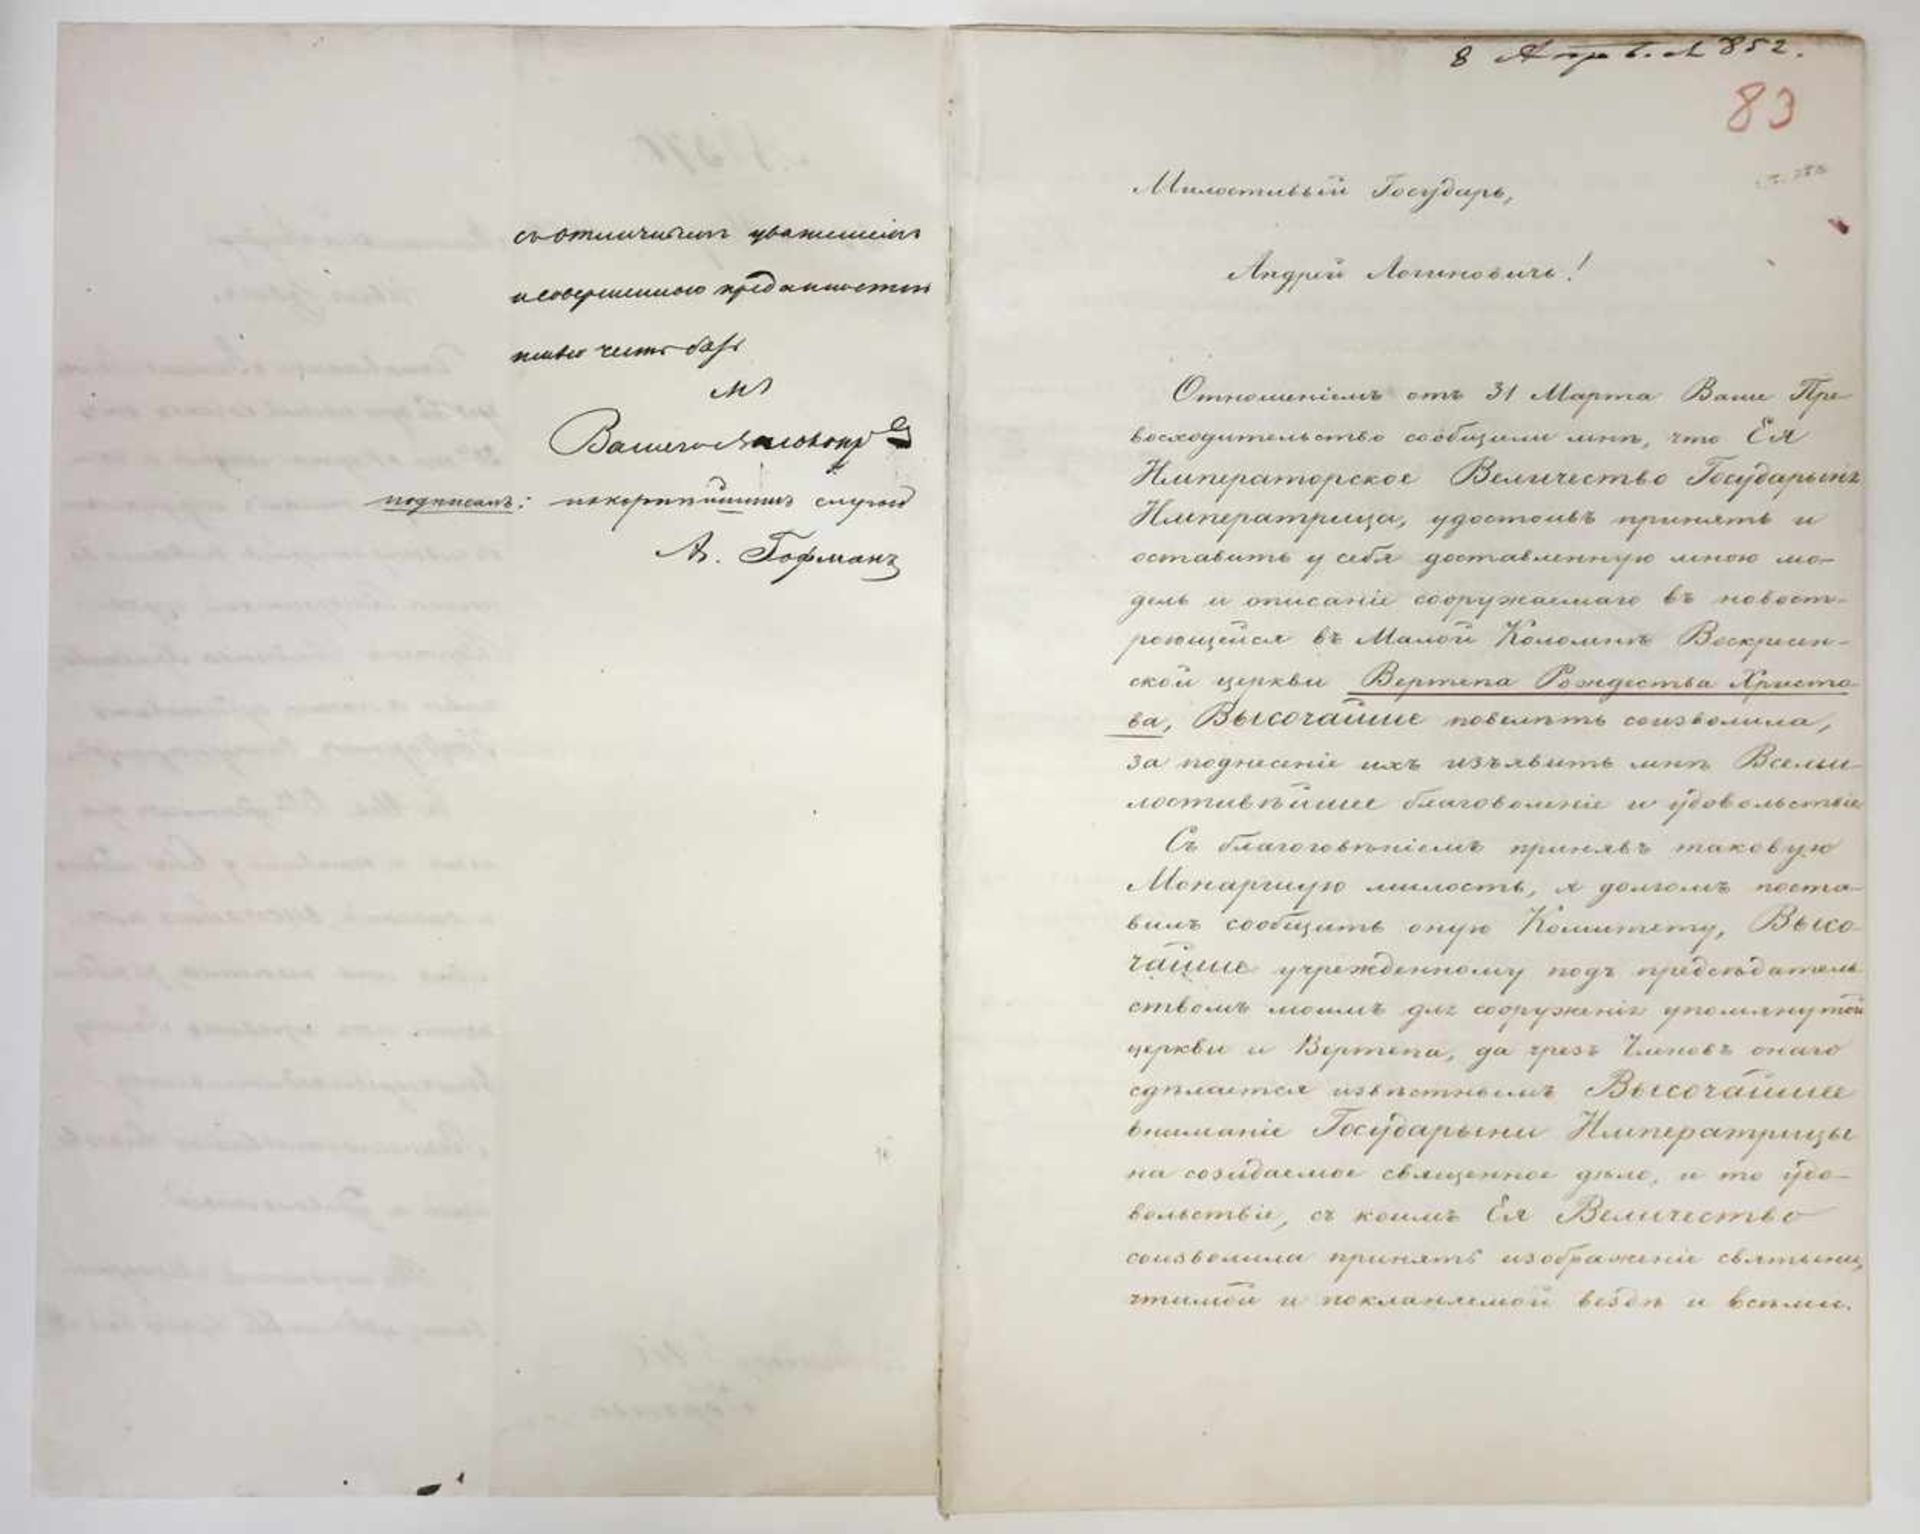 съ отличнымъ уваженіемъ
и совершенною преданностію
имѣю честь быть
Вашего
подписалъ: покорнѣйшимъ слугою
А. Гофманъ
8 Апр. № 852.
83
Милостивый Государь,
Андрей Логиновичъ!
Отношеніемъ отъ 31 Марта Ваше Пре-
восходительство сообщили мнѣ, что Ея
Императорское Величество Государыня
Императрица, удостоивъ принять и
оставить у себя доставленную мною мо-
дель и описаніе сооружаемаго въ новост-
роющейся въ Малой Коломнѣ Воскресен-
ской церкви Вертепа Рождества Христо-
ва, Высочайше повелѣть соизволила,
за поднесеніе ихъ изъявить мнѣ Всеми-
лостивѣйшее благоволеніе и удовольствіе
Съ благоговѣніемъ принявъ таковую
Монаршую милость, я долгомъ поста-
вилъ сообщить оную Комитету, Высо-
чайше учрежденному подъ предсѣдатель-
ствомъ моимъ для сооруженія упомянутой
церкви и Вертепа, да чрезъ Членовъ онаго
сдѣлается извѣстнымъ Высочайшее
вниманіе Государыни Императрицы
на созидаемое священное дѣло, и то удо-
вольствіе, съ коимъ Ея Величество
соизволила принять изображеніе святыни,
чтимой и покланяемой вездѣ и всѣми.